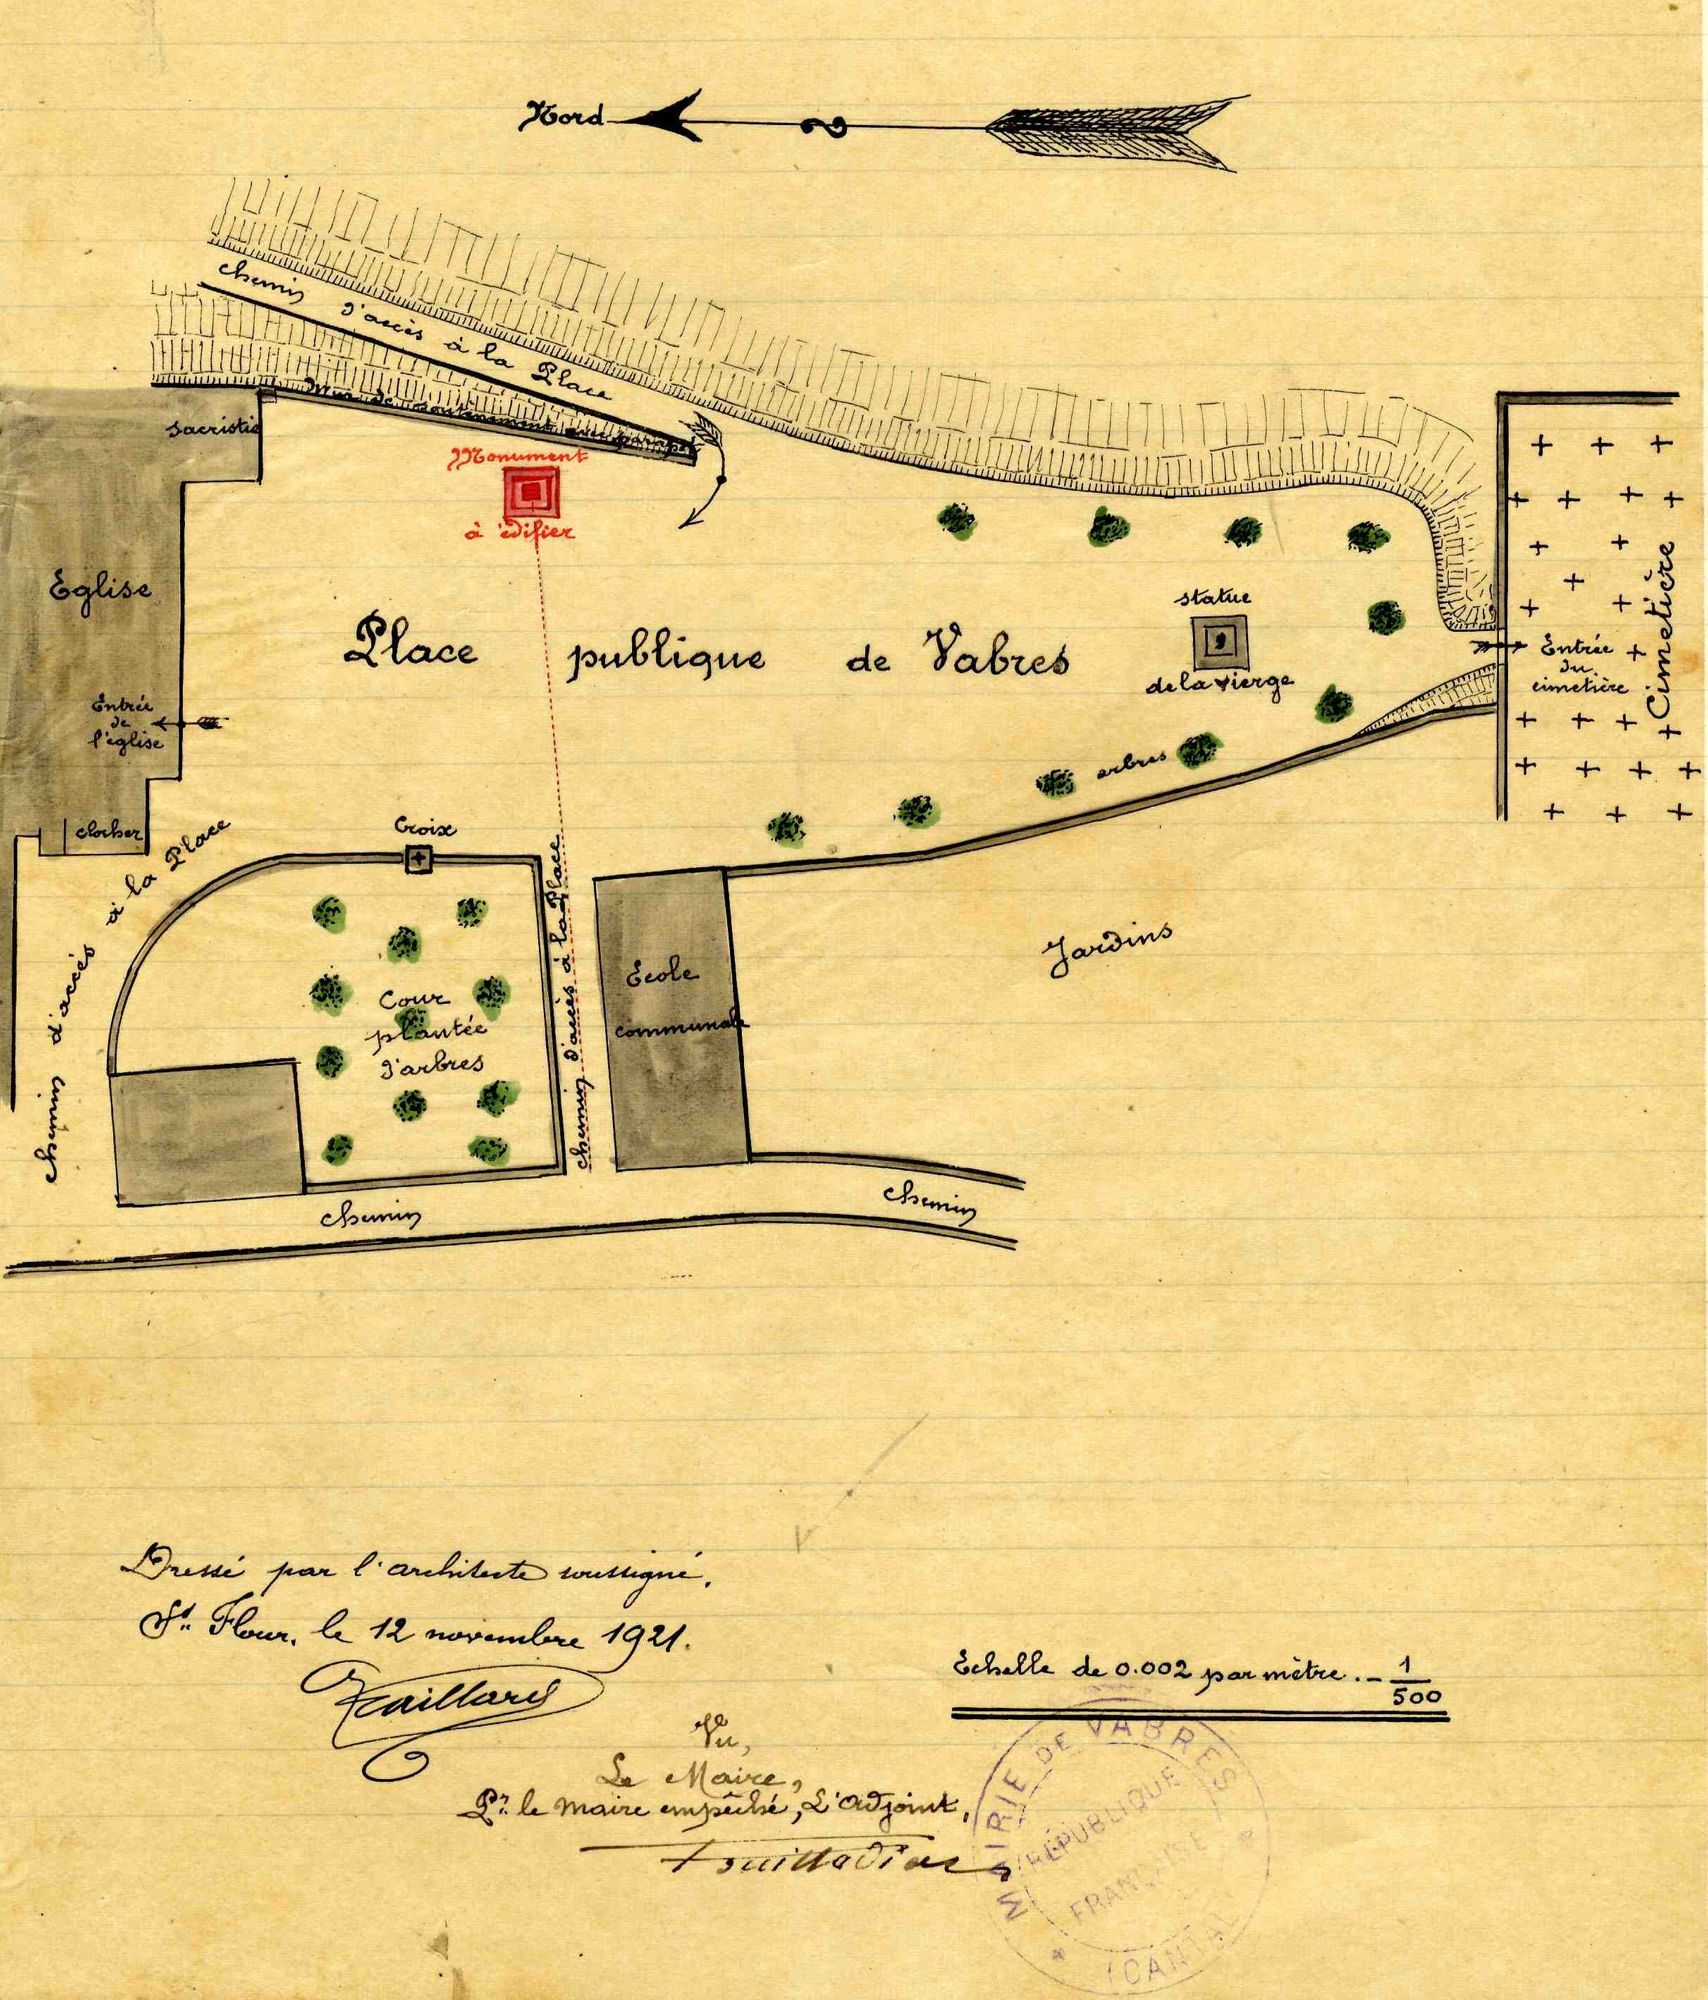 Nord
chemin d'accès à la Place
mur de soutènement avec parapet
sacristie
Monument
à édifier
Eglise
Place publique de Vabres
statue
de la vierge
Entrée
du
cimetière
Cimetière
Entrée
de
l'église
arbres
clocher
Croix
chemin d'accès à la Place
chemin d'accès à la Place
Cour
plantée
d'arbres
Ecole
communale
Jardins
chemin
chemin
Dressé par l'architecte soussigné.
St. Flour, le 12 novembre 1921.
Echelle de 0.002 par mètre. - 1/500
Vu,
Le Maire,
Pr. le maire empêché, L'adjoint,
MAIRIE DE VABRES
RÉPUBLIQUE
FRANÇAISE
(CANTAL)